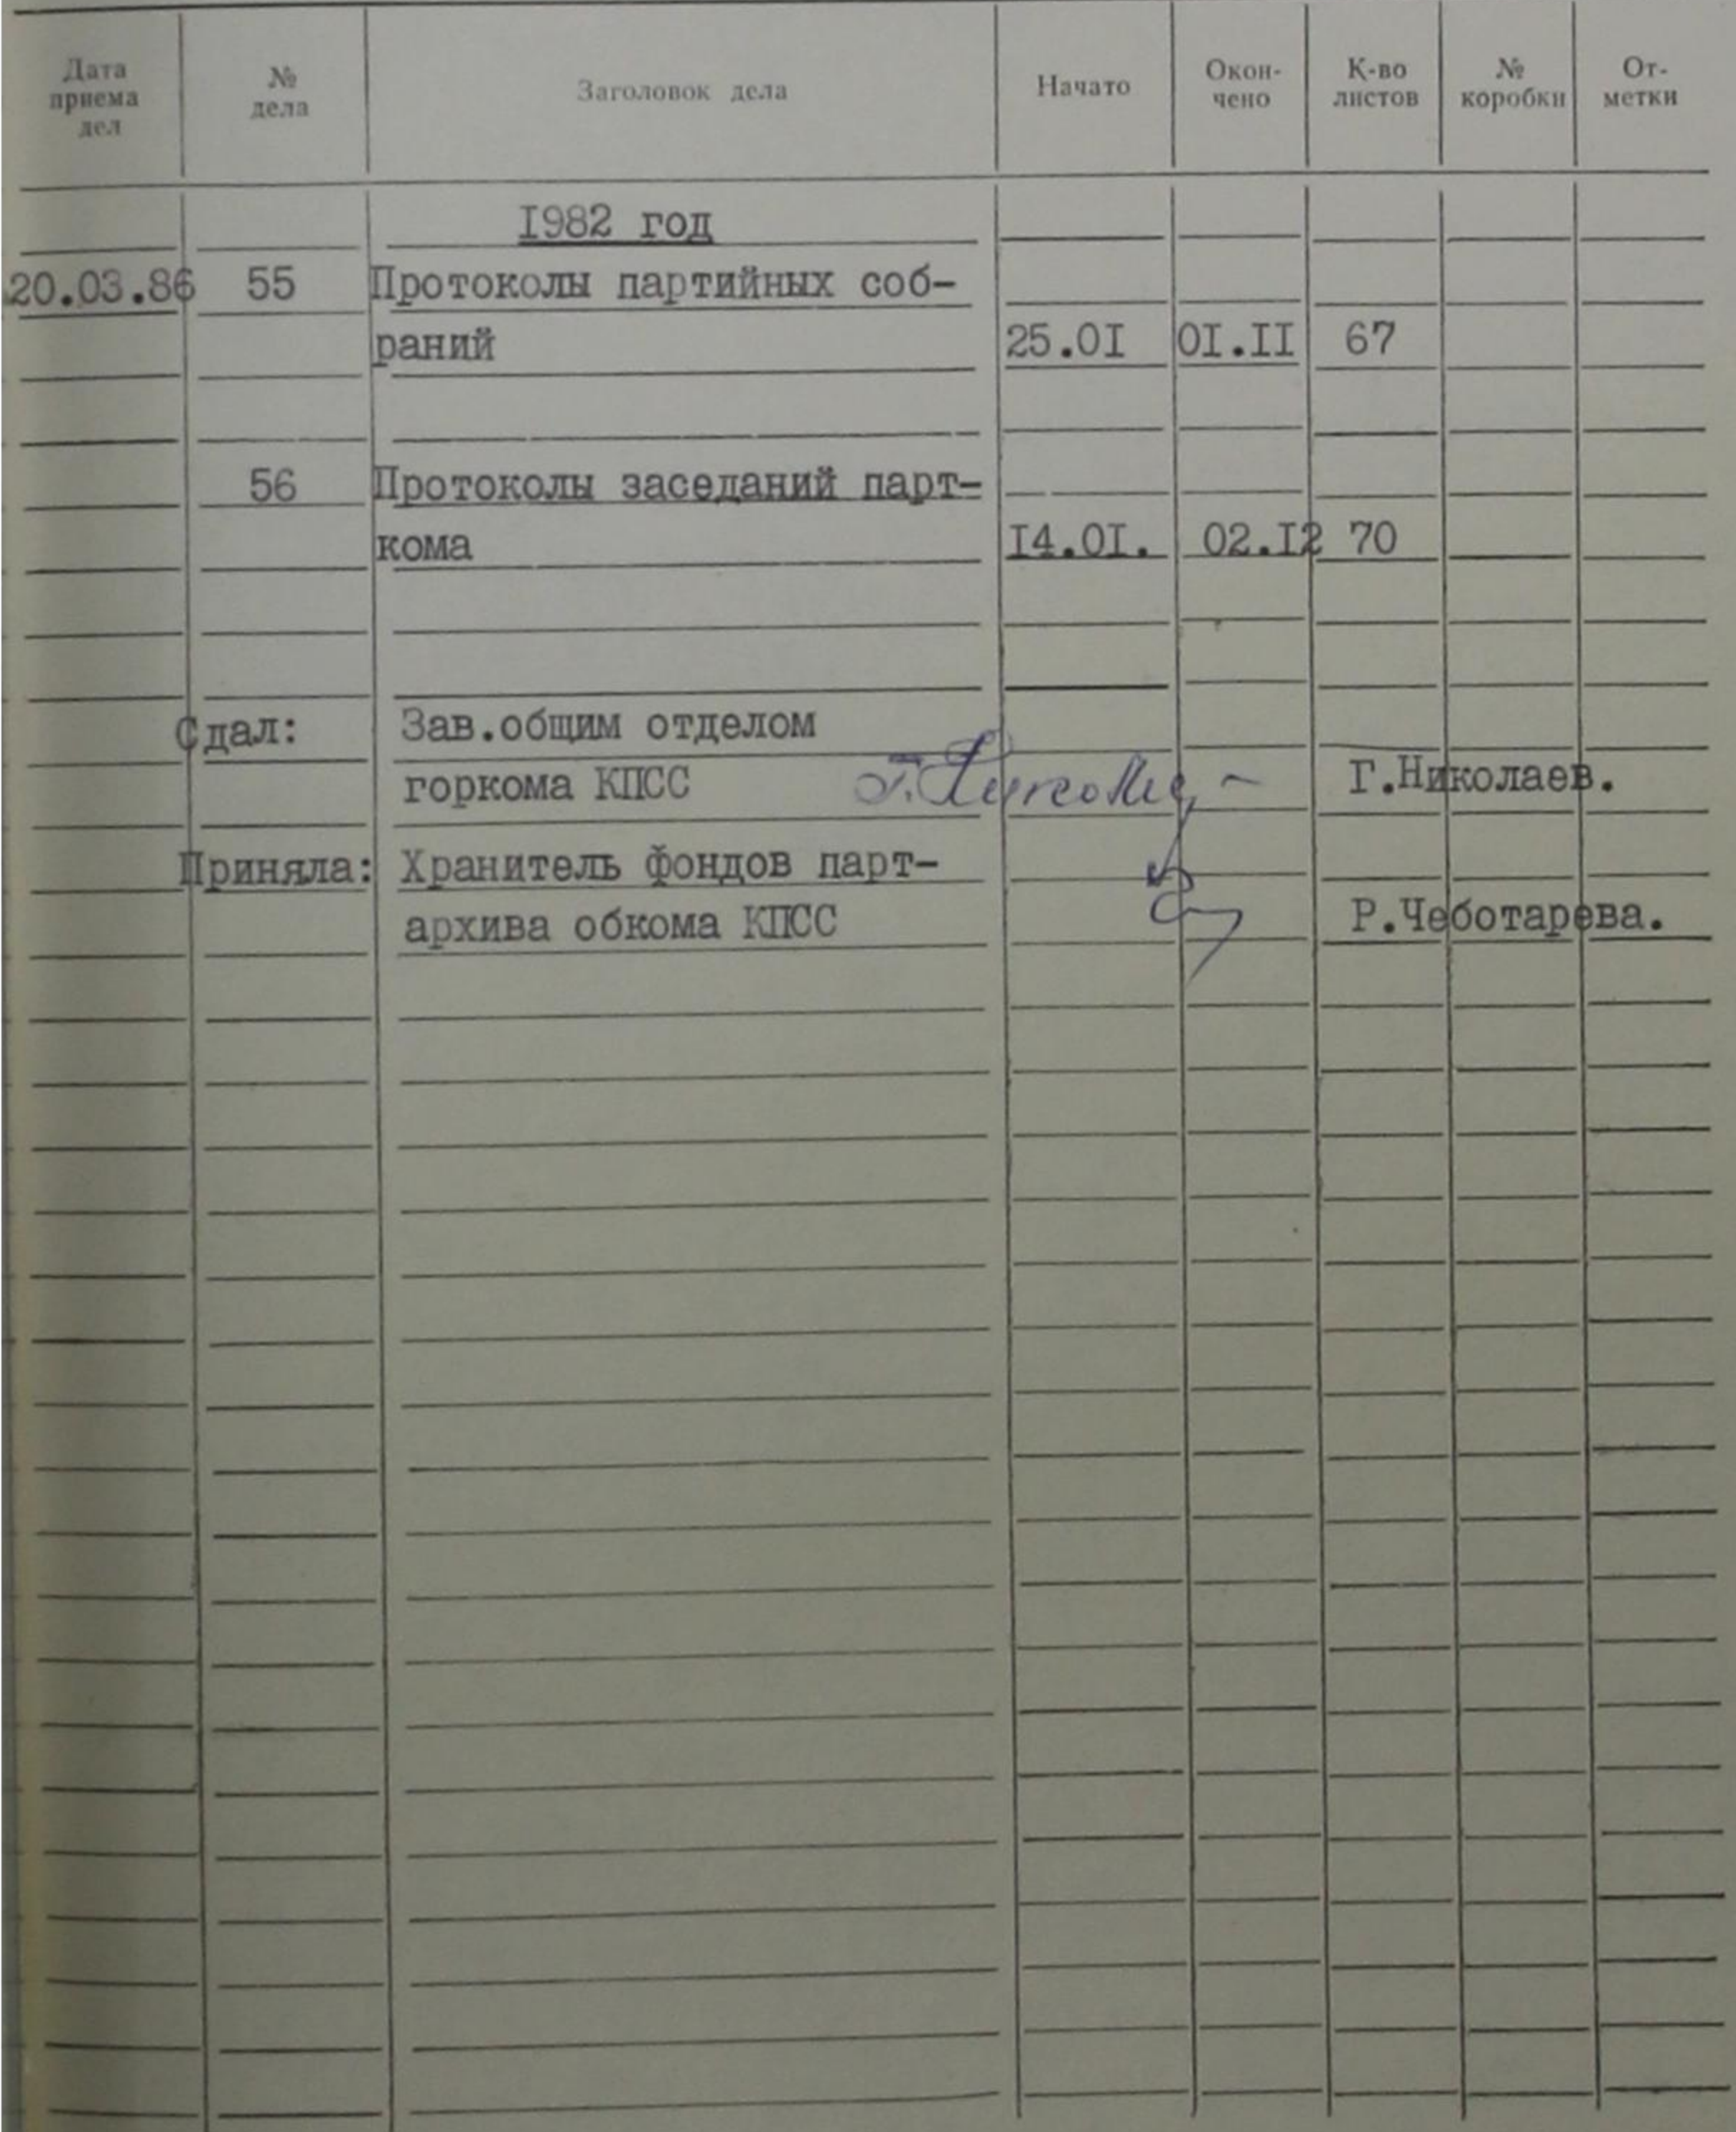 Дата приема дел № дела Заголовок дела Начато Окон- чено К-во листов № коробки От- метки
I982 год
20.03.86 55 Протоколы партийных соб-
раний 25.0I 0I.II 67
56 Протоколы заседаний парт-
кома I4.0I. 02.I2 70
Сдал: Зав.общим отделом
горкома КПСС Г.Николаев.
Приняла: Хранитель фондов парт-
архива обкома КПСС Р.Чеботарева.